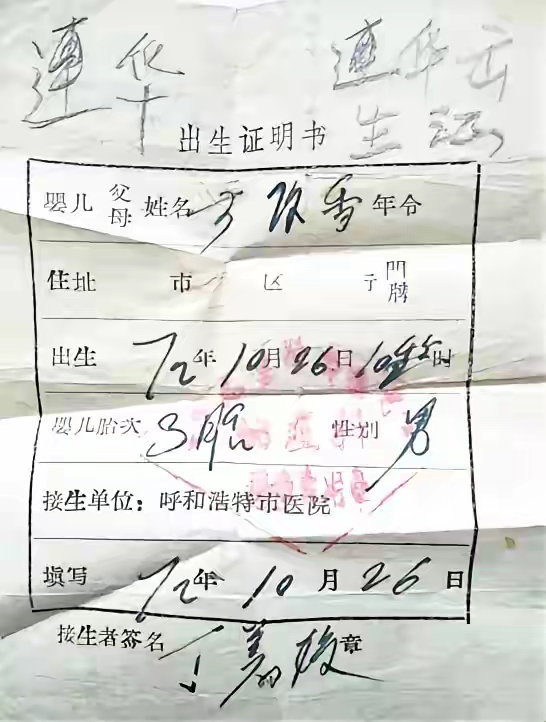 連华 連华云
生证
出生证明书
婴儿父母姓名 改香 年令
住址 市 区 門牌
出生 72年10月26日10 时
婴儿胎次 3胎 性别 男
接生单位：呼和浩特市医院
填写 72年10月26日
接生者签名 丁 章